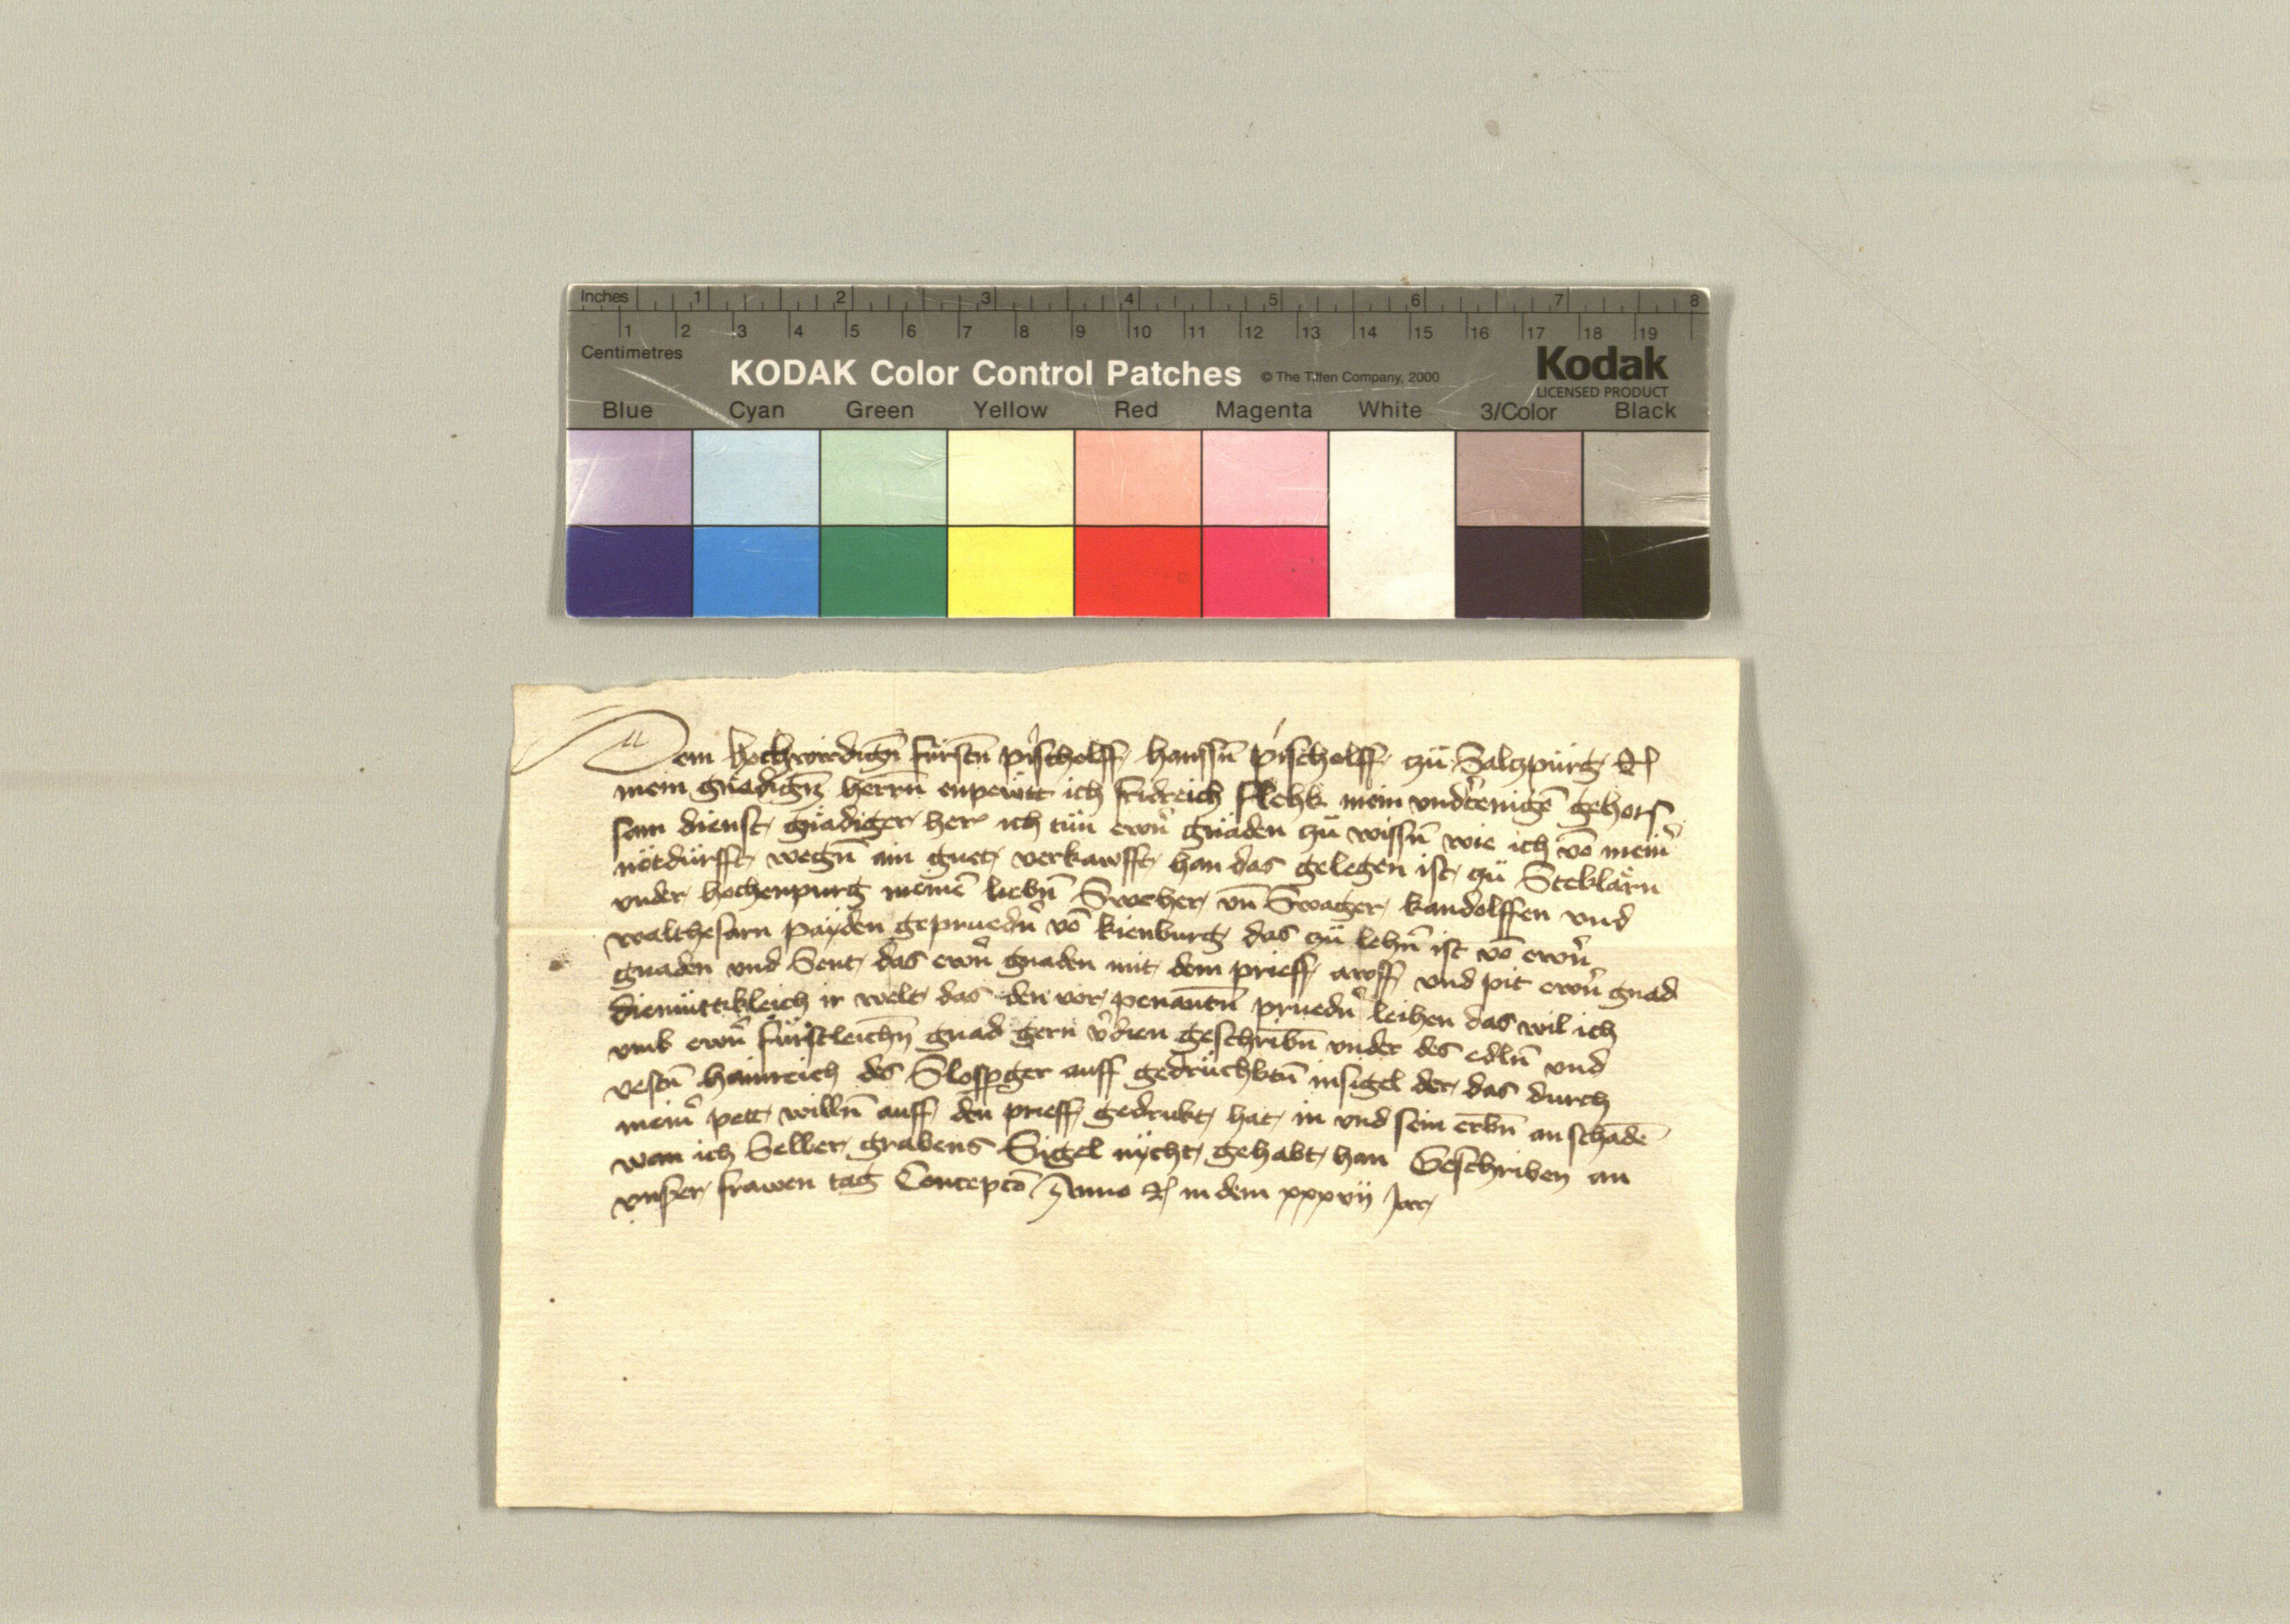 Inches 1 2 3 4 5 6 7 8
1 2 3 4 5 6 7 8 9 10 11 12 13 14 15 16 17 18 19
Centimetres
KODAK Color Control Patches © The Tiffen Company, 2000 Kodak
LICENSED PRODUCT
Blue Cyan Green Yellow Red Magenta White 3/Color Black
Dem hochwirdigñ fürstñ pischolff hanssñ pischolff zü Salczpürg
mein gnädigñ herrñ enpewtt ich fridreich flehk mein vndtenigē gehors
sam dienst gnädiger her ich tün ewrñ gnäden zü wissñ wie ich vō mein̄
nötdürfft wegñ ain guet verkawfft han das gelegen ist zü Steklärn
vnder hochenpurg meinē liebñ Sweher vñ Swager kandolffen vnd
walthesarn päyden gepruedñ vō kienburg das zü lehñ ist vō ewrñ
gnaden vnd Sent das ewrñ gnaden mit dem prieff awff vnd pit ewrñ gnad
diemüttikleich ir welt das den vor penantñ pruedñ leihen das wil ich
vmb ewrñ fürstleichñ gnad gern v̄dien geschribñ vnder des edlñ vnd
vestñ hainreich des Slospger auff gedrüchktñ insigel der das durch
mein̄ pett willñ auff den prieff gedrukt hat in vnd sein erbñ an schadē
wan ich Selber grabens Sigel nycht gehabt han Geschriben an
vnser frawen tag Concepcō Anno in dem xxxvij Jar